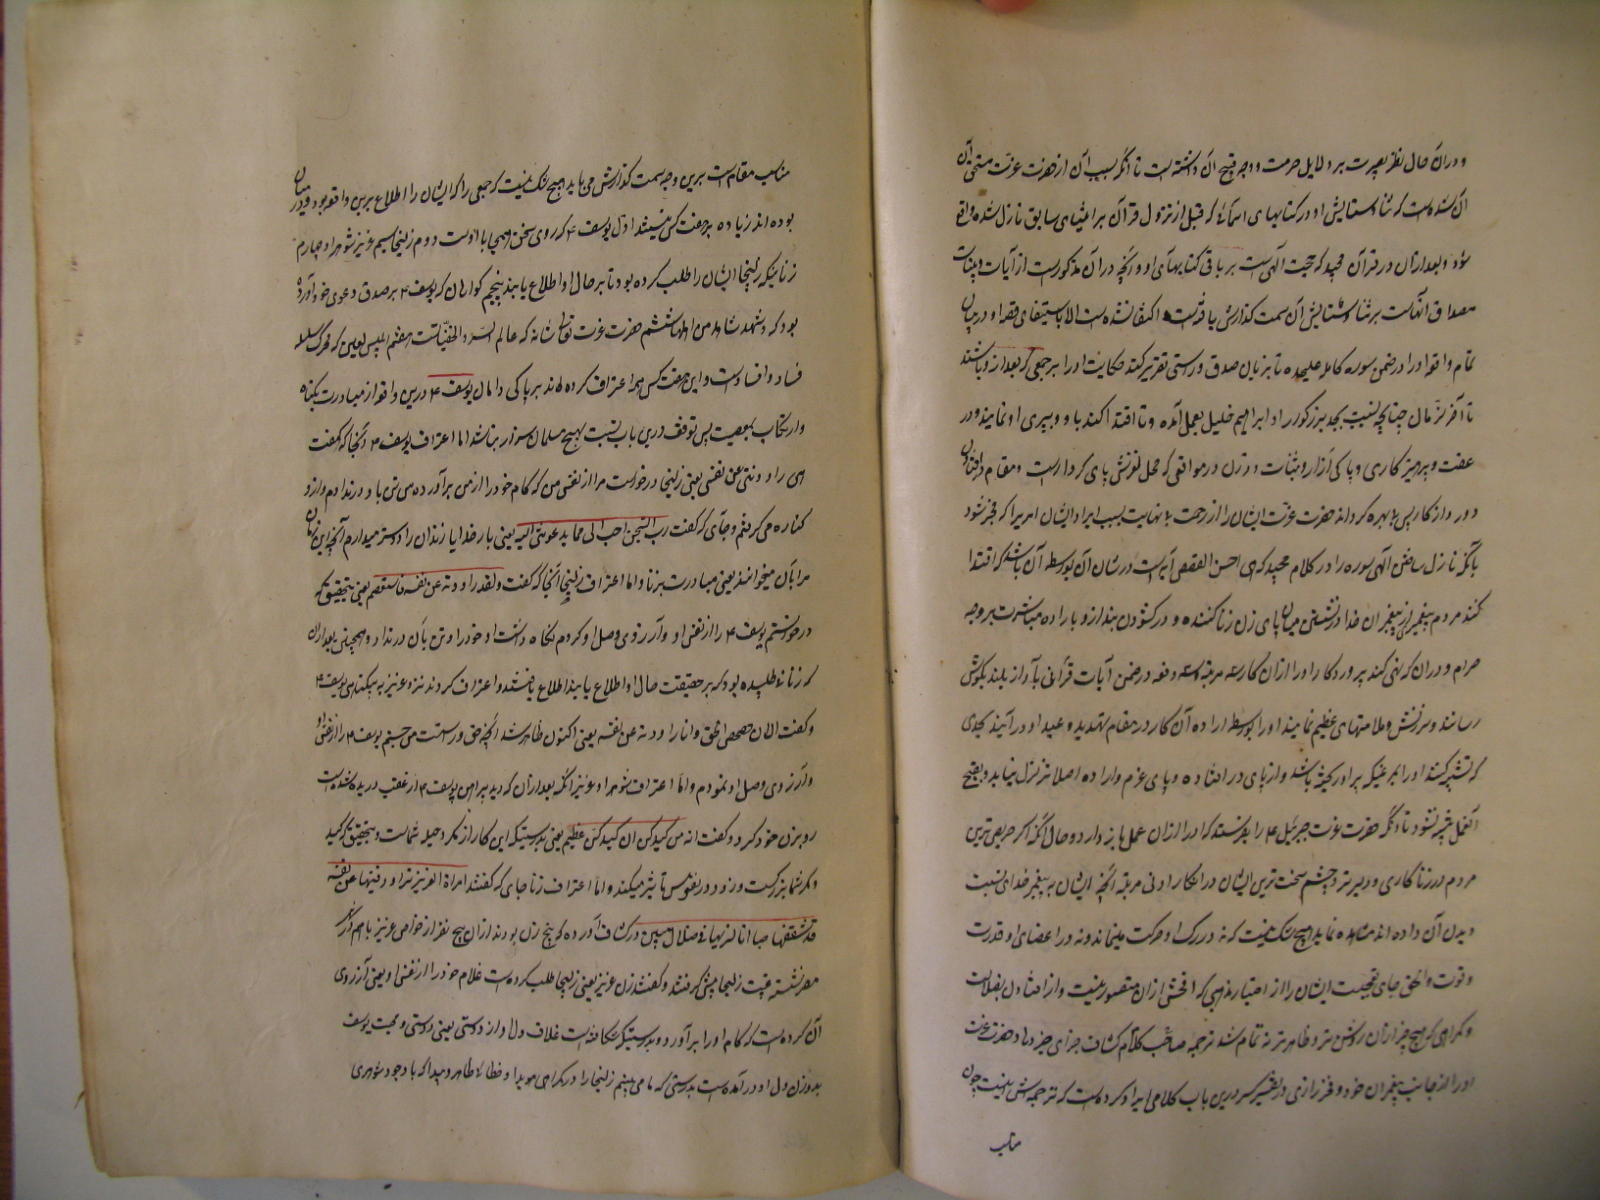 و دران حال نظر بصیرت بر دلایل حرمت و وجه قبح ان داشته است تا آنکه بسبب آن از حضرت عزت مستحق آن
آن شده است که ثنا و ستایش او در کتابهای اسمانی که قبل از نزول قرآن بر انبیای سابق نازل شده واقع
شود و بعد ازان در قرآن مجید که حجت الهی است بر باقی کتابهای او و آنچه در آن مذکورست از آیات و بینات
مصداق آنهاست بر ثنا و ستایش آن سمت گذارش یافته است و اکتفا نشده است الا باستیفای قصه او در بیان
تمام واقعه او را در ضمن سوره کامله علیحده تا بزبان صدق و راستی تقریر کنند حکایت او را بر جمعی که بعد ازو باشند
تا آخر زمان چنانچه نسبت بجد بزرگوار او ابراهیم خلیل بعمل آمده و تا اقتدا کنند باو و پیروی او نمایند در
عفت و پرهیزکاری و پاکی ازار و ثبات ورزیدن در مواقعی که محل لغزش پای کردارست و مقام درافتادن
دور از کار پس بهره کرداند حضرت عزت ایشان را از رحمت بی نهایت بسبب ایراد ایشان امریرا که منجر شود
بآنکه نازل ساختن الهی سوره را در کلام مجید که احسن القصص آمده است در شان آن بواسطه آن باشد که اقتدا
کنند مردم به پیغمبر از پیغمبران خدا در نشستن میان پای زن زناکننده و در کشودن بند ازار و باراده مباشرت بر وجه
حرام و دران که نهی کند پروردکار او را ازان کار سه مرتبه و سه دفعه در ضمن آیات قرآنی بآواز بلند بگوش
رسانند و سرزنش و ملامتهای عظیم نمایند او را بواسطه اراده آن کار در مقام تهدید و وعید او درآیند بحدی
که تشبیه کنند او را بمرغیکه پر او ریخته باشد و از پای درافتاده و پای عزم و اراده اصلا متزلزل نیابد و بقبح
آن عمل متنبه نشود تا آنکه حضرت عزت جبرئیل ع را بفرستد که او را ازان عمل باز دارد و حال آنکه اگر حریص ترین
مردم در زناکاری و دلیرتر و چشم سخت ترین ایشان در انکار ادنی مرتبه آنچه ایشان به پیغمبر خدای نسبت
دیدن آن داده اند مشاهده نماید هیچ شک نیست که نه در رک او حرکت میماند و نه در اعضای او قدرت
و قوت و الحق جای تعجبست ایشان را از اختیار مذهبی که افحش ازان متصور نیست و از افتادن بضلالت
و کمراهی که هیچ چیز ازان روشن تر و ظاهرتر نه تمام شد ترجمه صاحب کلام کشاف جزای خیر دهاد حضرت عزت
او را از جانب پیغمبران خود و فخر رازی در تفسیر کبیر درین باب کلامی ایراد کرده است که ترجمه‌اش اینست چون
مناسب
مناسب مقام است برین وجه سمت گذارش می یابد هیچ شک نیست که جمعی را که ایشان را اطلاع برین واقعه بود و درمیان
بوده اند زیاده بر هفت کس نیستند اول یوسف ع که روی سخن همه با اوست دوم زلیخا سیم عزیز شوهر او چهارم
زنانیکه زلیخا ایشان را طلب کرده بود تا بر حال او اطلاع یابند پنجم گواهان که یوسف ع بر صدق دعوی خود آورده
بود که و شهد شاهد من اهلها ششم حضرت عزت تعالی شانه که عالم السر و الخفیاتست هفتم ابلیس لعین که محرک سلسله
فساد و افسادست و این هفت کس همه اعتراف کرده اند بر پاکی دامان یوسف ع درین واقعه از مبادرت بکناه
و ارتکاب بمعصیت پس توقف درین باب نسبت بهیچ مسلمان سزاوار نباشد اما اعتراف یوسف ع آنجا که گفت
هی راودتنی عن نفسی یعنی زلیخا درخواست مرا از نفس من که کام خود را از من برآورد و من تن باو درندادم و ازو
کناره می کرفتم و جای که گفت رب السجن احب الی مما یدعوننی الیه یعنی بار خدایا زندان را دوستر میدارم آنچه این زنان
مرا بآن میخوانند یعنی مبادرت بزنا و اما اعتراف زلیخا آنجا که گفت و لقد راودته عن نفسه فاستعصم یعنی بتحقیق که
درخواستم یوسف ع را از نفس او و آرزوی وصل او کردم نگاه داشت او خود را و تن بآن درنداد و همچنین بعد ازان
که زنان طلبیده بود که بر حقیقت حال او اطلاع یابند اطلاع یافتند و اعتراف کردند نزد عزیز به بیگناهی یوسف ع
و گفت الان حصحص الحق و انا راودته عن نفسه یعنی اکنون ظاهر شد آنچه حق و راست است می جستم یوسف ع را از نفس او
و آرزوی وصل او نمودم و اما اعتراف شوهر او عزیز آنکه بعد ازان که دید پیراهن یوسف ع از عقب دریده شده است
رو بزن خود کرد و گفت انه من کیدکن ان کیدکن عظیم یعنی بدرستیکه این کار از مکر و حیله شماست و بتحقیق که کید
و مکر شما بزرکست و زود در نفوس تاثیر میکند و اما اعتراف زنان جای که گفتند امراة العزیز تراود فتیها عن نفسه
قد شغفها حبا انا لنریها فی ضلال مبین در کشاف آورده که پنج زن بودند ازان پنج نفر از خواص عزیز باهم در شهر
مصر نشسته غیبت زلیخا پیش کرفتند و گفتند زن عزیز یعنی زلیخا طلب کرده است غلام خود را از نفس او یعنی آرزوی
آن کرده است که کام او را برآورد و بدرستیکه شکافته است غلاف دل او از دوستی یعنی دوستی و محبت یوسف
بدرون دل او درآمده است بدرستی که ما می بینم زلیخا را در کمراهی هویدا و خطای ظاهر و پیدا که با وجود شوهری